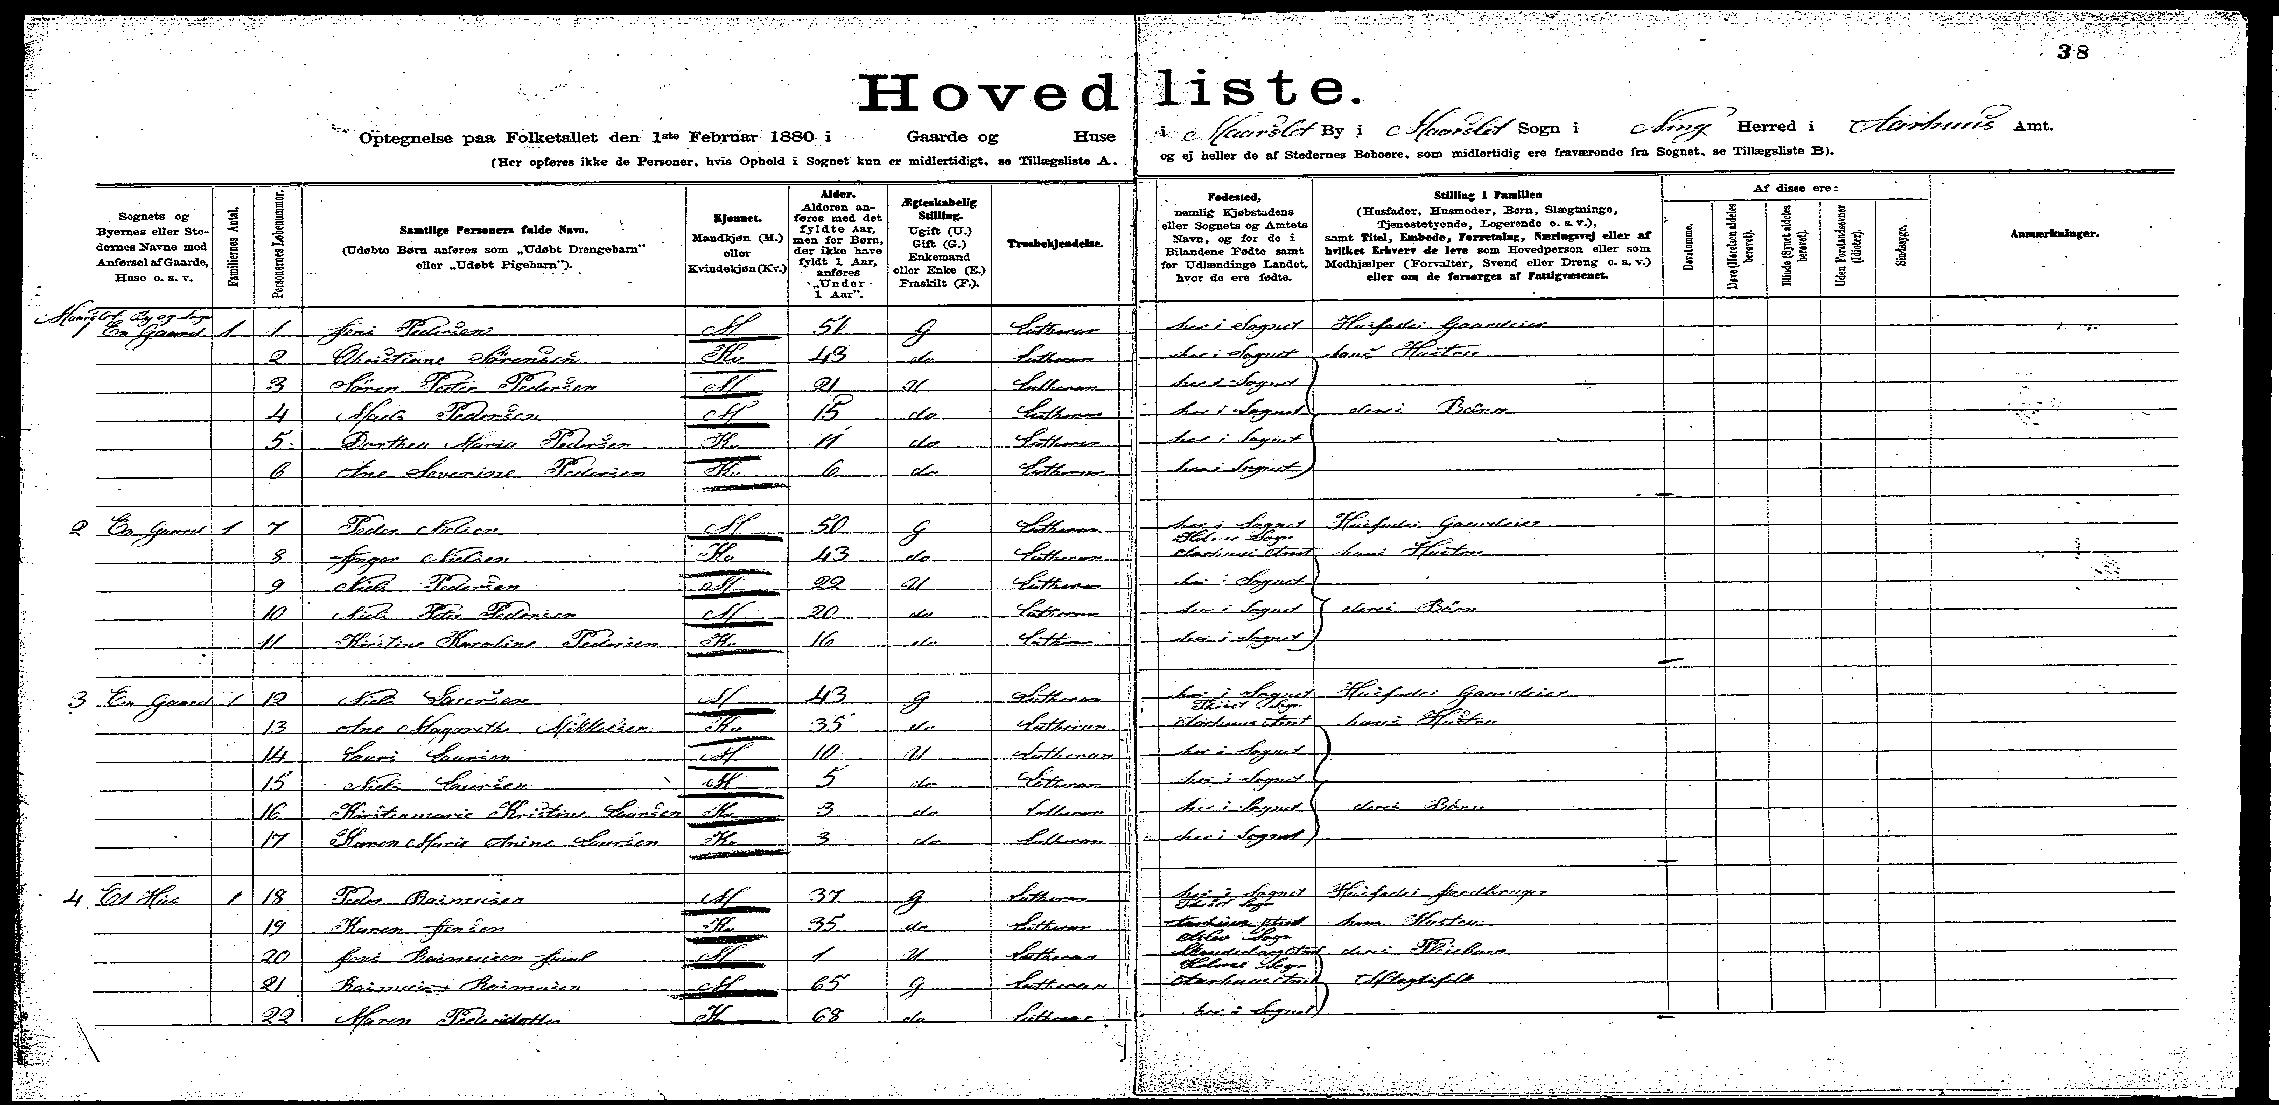 38
Hovedliste.
Optegnelse paa Folketallet den 1ste Februar 1880 i Gaarde og Huse i Maarslet By i Maarslet Sogn i Ning Herred i Aarhuus Amt.
(Her opføres ikke de Personer, hvis Ophold i Sognet kun er midlertidigt, se Tillægsliste A. og ej heller de af Stedernes Beboere, som midlertidig ere fraværende fra Sognet, se Tillægsliste B).
Sognets og Byernes eller Stedernes Navne med Anførsel af Gaarde, Huse o. s. v.
Familiernes Antal.
Personernes Løbenummer.
Samtlige Personers fulde Navn.
(Udøbte Børn anføres som „Udøbt Drengebarn" eller „Udøbt Pigebarn").
Kjønnet.
Mandkjøn (M.) eller Kvindekjøn (Kv.)
Alder.
Alderen anføres med det fyldte Aar, men for Børn, der ikke have fyldt 1 Aar, anføres „Under 1 Aar".
Ægteskabelig Stilling.
Ugift (U.) Gift (G.) Enkemand eller Enke (E.) Fraskilt (F.).
Trosbekjendelse.
Fødested,
nemlig Kjøbstadens eller Sognets og Amtets Navn, og for de i Bilandene Fødte samt for Udlændinge Landet, hvor de ere fødte.
Stilling i Familien
(Husfader, Husmoder, Børn, Slægtninge, Tjenestetyende, Logerende o. s. v.), samt Titel, Embede, Forretning, Næringsvej eller af hvilket Erhverv de leve som Hovedperson eller som Medhjælper (Forvalter, Svend eller Dreng o. s. v.) eller om de forsørges af Fattigvæsenet.
Af disse ere:
Døvstumme.
Døve (Hørelsen aldeles berøvet).
Blinde (Synet aldeles berøvet).
Uden Forstandsevner (Idioter).
Sindssyge.
Anmærkninger.
Maarslet By og Sogn
1 En Gaard 1 1 Jens Pedersen M 51 G Lutheran her i Sognet Husfader Gaardeier
2 Christiane Sørensen Kv 43 do Lutheran her i Sognet hans Hustru
3 Søren Peter Pedersen M 21 U Lutheran her i Sognet
4 Niels Pedersen M 15 do Lutheran her i Sognet deres Børn
5 Dorthea Maria Pedersen Kv 11 do Lutheran her i Sognet
6 Ane Severine Pedersen Kv 6 do Lutheran her i Sognet
2 En Gaard 1 7 Peder Nielsen M 50 G Lutheran her i Sognet Husfader Gaardeier
8 Inger Nielsen Kv 43 do Lutheran Sogn Aarhuus Amt hans Hustru
9 Niels Pedersen M 22 U Lutheran her i Sognet
10 Niels Peter Pedersen M 20 do Lutheran her i Sognet deres Børn
11 Kirstine Karoline Pedersen Kv 16 do Lutheran her i Sognet
3 En Gaard 1 12 Niels Laursen M 43 G Lutheran her i Sognet Husfader Gaardeier
13 Ane Magarethe Mikkelsen Kv 35 do Lutheran Tiset Sogn Aarhuus Amt hans Hustru
14 Laurs Laursen M 10 U Lutheran her i Sognet
15 Niels Laursen M 5 do Lutheran her i Sognet
16 Kirstenmarie Kristine Laursen Kv 3 do Lutheran her i Sognet deres Børn
17 Karen Marie Anine Laursen Kv 3 do Lutheran her i Sognet
4 Et Hus 1 18 Peder Rasmussen M 37 G Lutheran her i Sognet Husfader Jordbruger
19 Karen Jensen Kv 35 do Lutheran Tiset Sogn Aarhuus Amt hans Hustru
20 Jens Rasmussen Juul M 1 U Lutheran Sogn Skanderborg Amt deres Pleiebarn
21 Rasmus Rasmussen M 65 G Lutheran Holme Sogn Aarhuus Amt Aftægtsfolk
22 Maren Pedersdatter Kv 68 do Lutheran her i Sognet